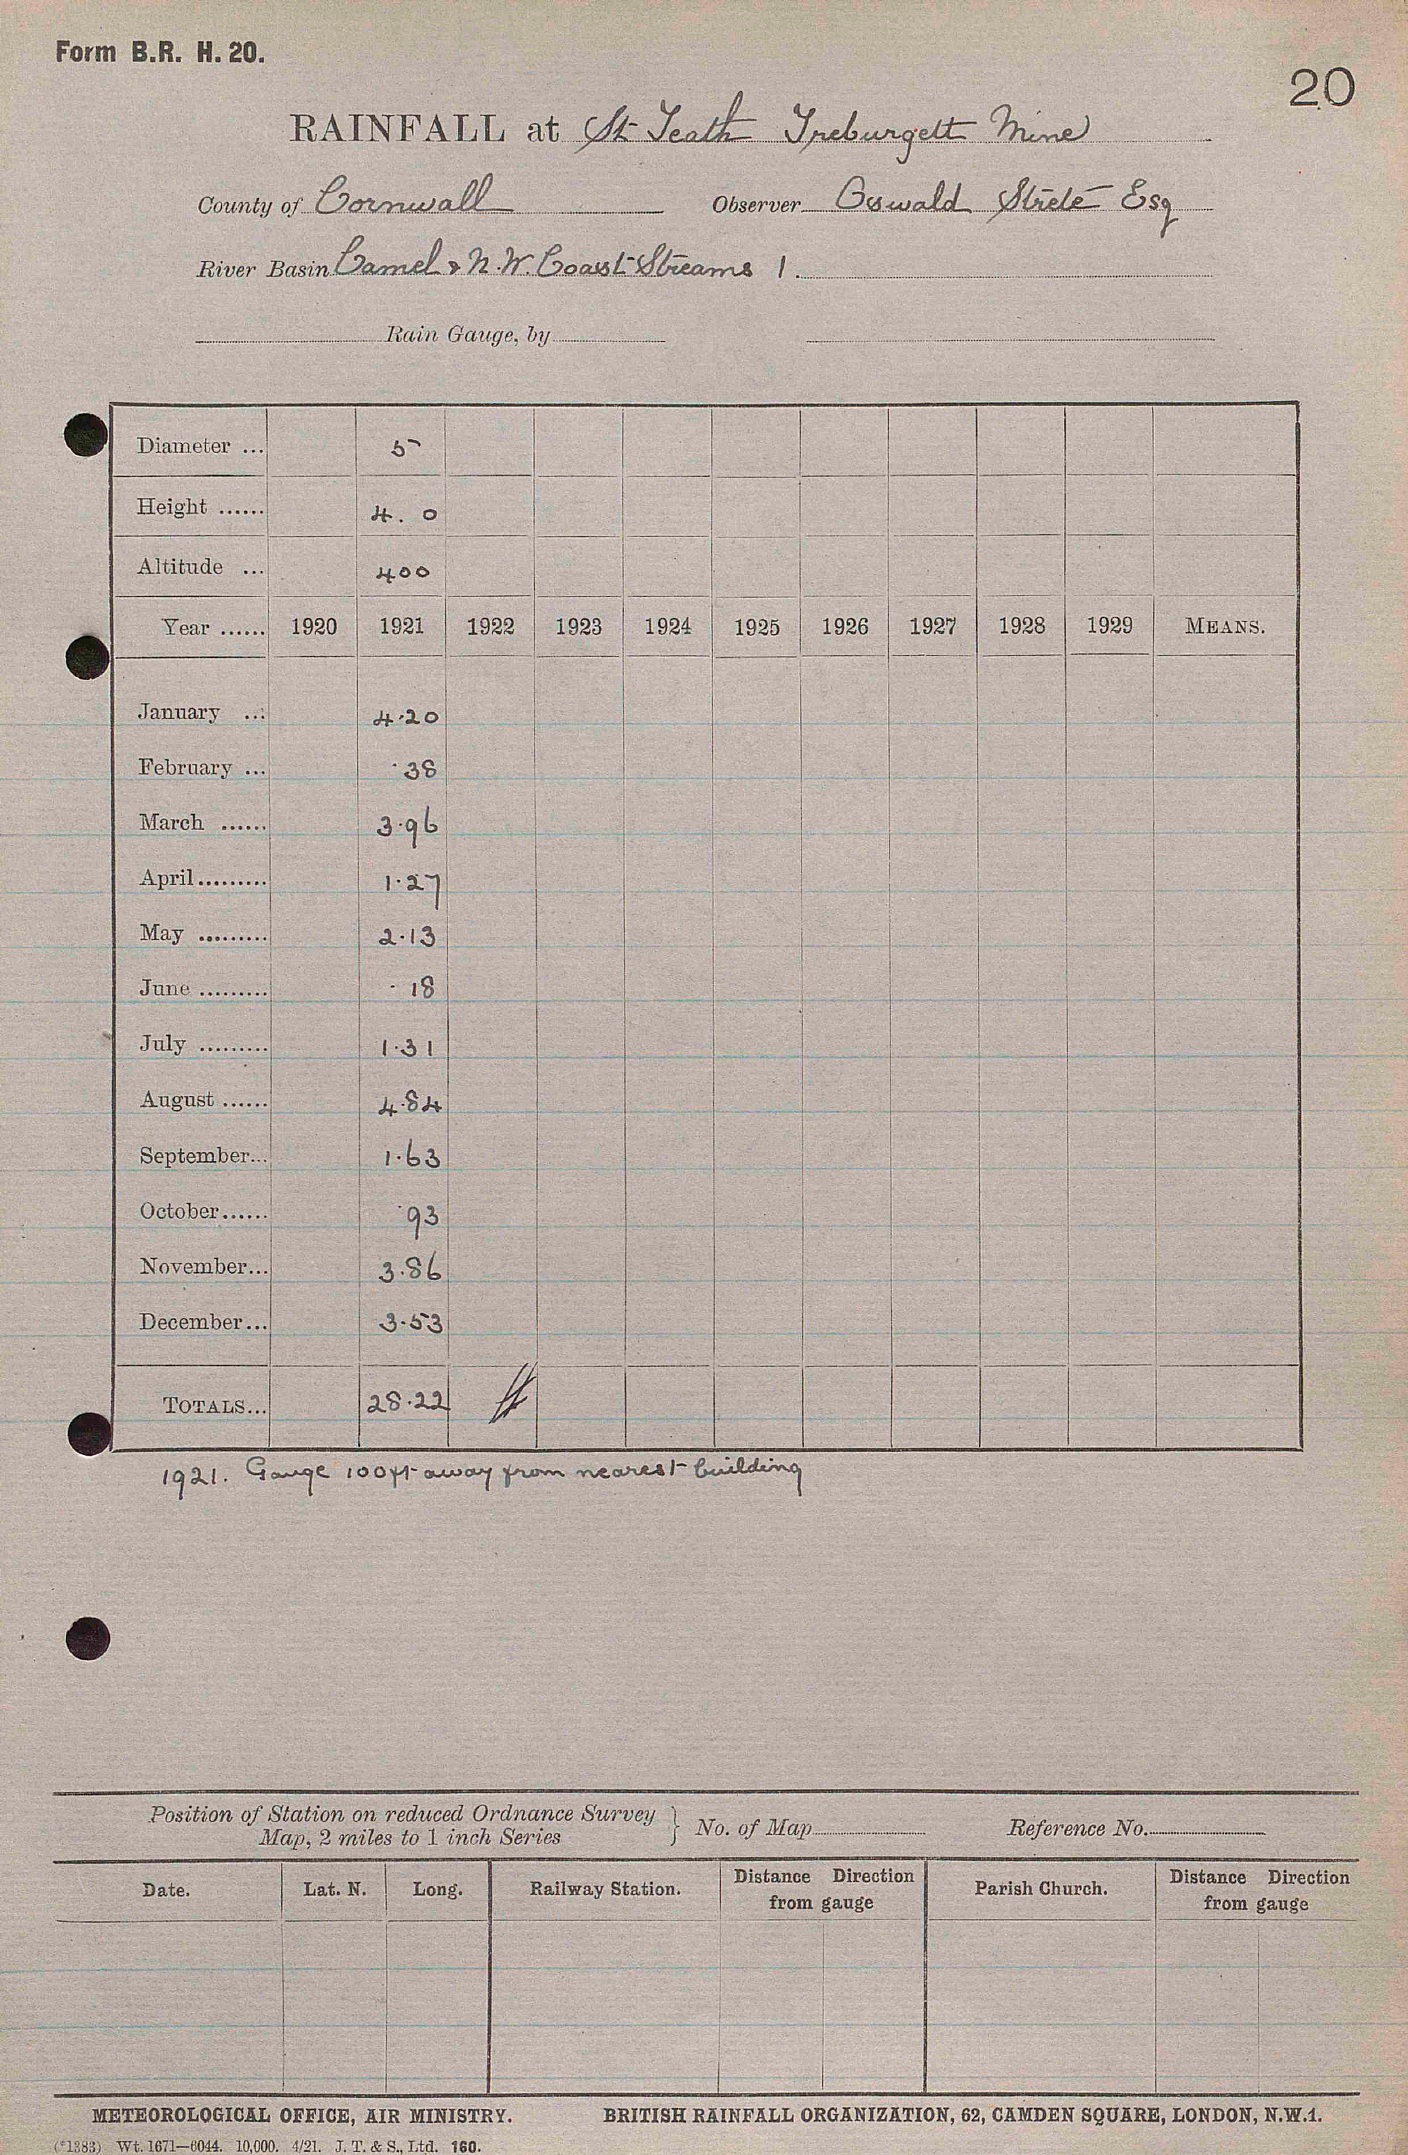 Form B.R. H. 20.
20
RAINFALL at St Teath Treburgett Mine
County of Cornwall Observer Oswald Strete Esq
River Basin Camel & N.W. Coast Streams 1.
Rain Gauge, by
Diameter ... 5
Height ...... 4. 0
Altitude ... 400
Year ...... 1920 1921 1922 1923 1924 1925 1926 1927 1928 1929 MEANS.
January ... 4.20
February ... .38
March ...... 3.96
April......... 1.27
May ......... 2.13
June ......... .18
July ......... 1.31
August ...... 4.84
September... 1.63
October...... .93
November... 3.86
December... 3.53
TOTALS... 28.22
1921. Gauge 100ft away from nearest building
Position of Station on reduced Ordnance Survey
Map, 2 miles to 1 inch Series } No. of Map Reference No.
Date. Lat. N. Long. Railway Station. Distance Direction from gauge Parish Church. Distance Direction from gauge
METEOROLOGICAL OFFICE, AIR MINISTRY. BRITISH RAINFALL ORGANIZATION, 62, CAMDEN SQUARE, LONDON, N.W.1.
(*1383) Wt. 1671—6044. 10,000. 4/21. J. T. & S., Ltd. 160.